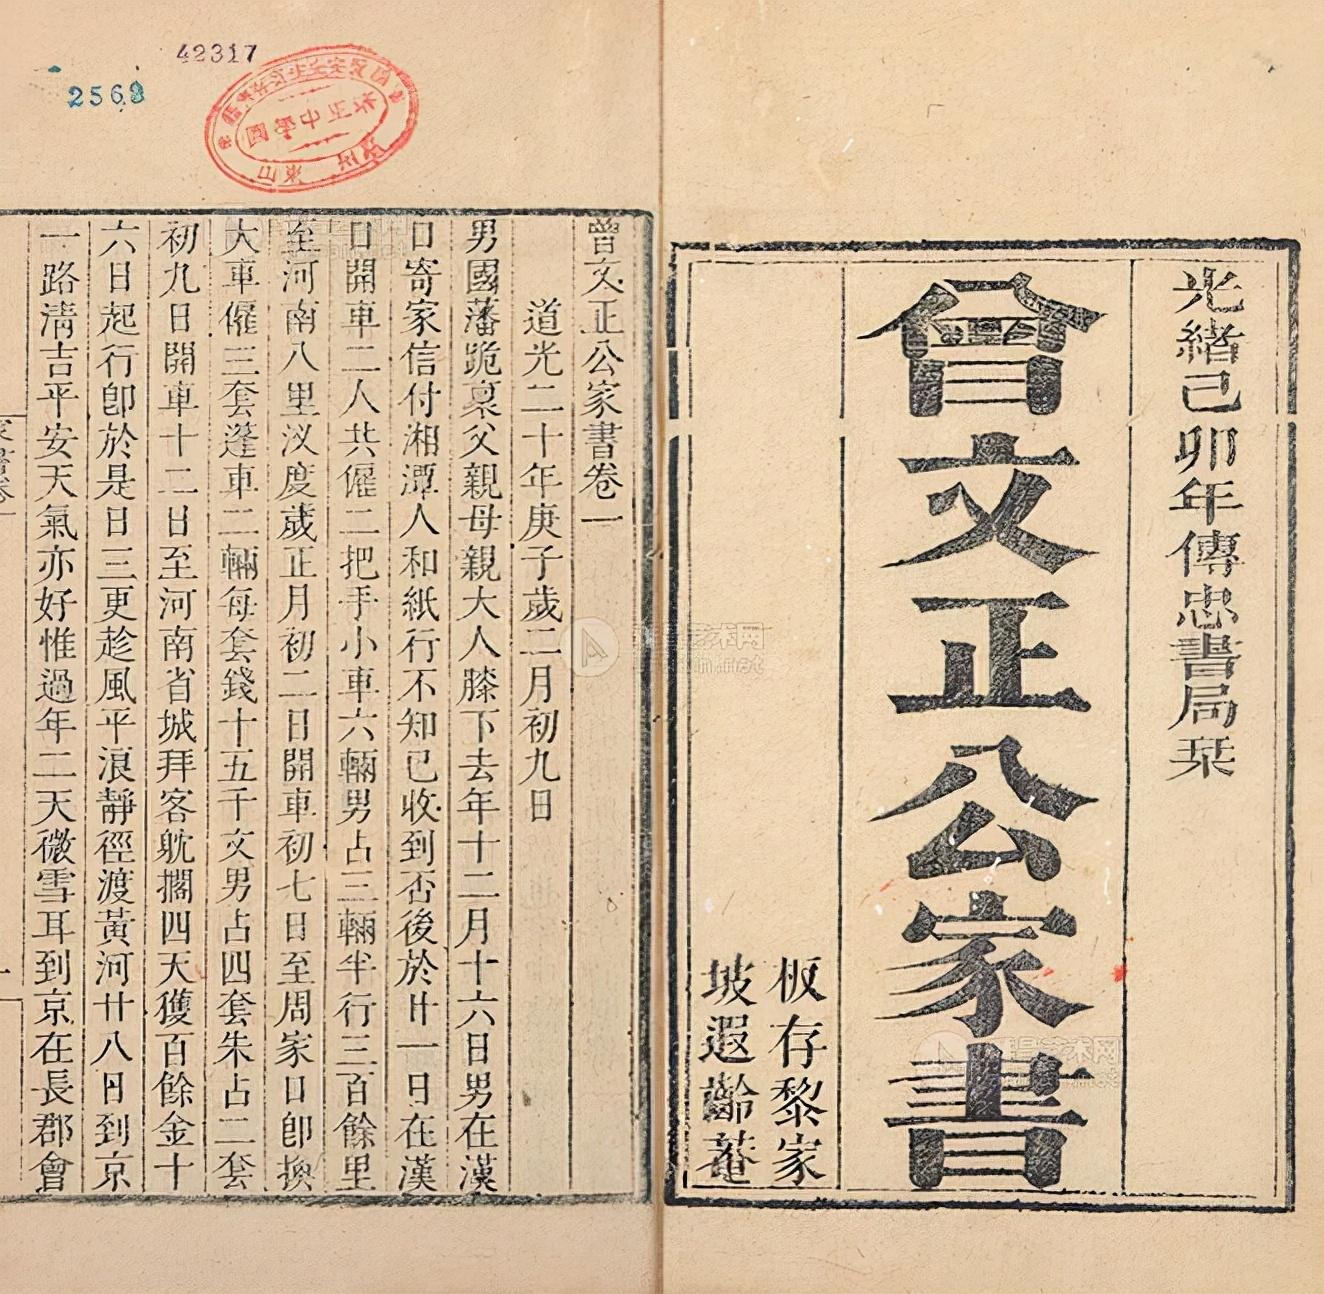 光緒己卯年傳忠書局栞
曾文正公家書
板存黎家
坡遐齡菴
42317
2563
曾文正公家書卷一
道光二十年庚子歲二月初九日
男國藩跪稟父親母親大人膝下去年十二月十六日男在漢
口寄家信付湘潭人和紙行不知已收到否後於廿一日在漢
口開車二人共僱二把手小車六輛男占三輛半行三百餘里
至河南八里汊度歲正月初二日開車初七日至周家口卽換
大車僱三套篷車二輛每套錢十五千文男占四套朱占二套
初九日開車十二日至河南省城拜客躭擱四天獲百餘金十
六日起行卽於是日三更趁風平浪靜徑渡黃河廿八日到京
一路清吉平安天氣亦好惟過年二天微雪耳到京在長郡會
家書卷一